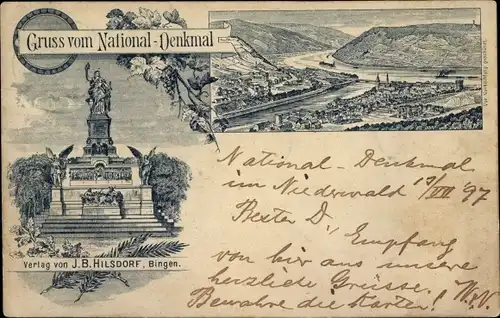 Gruss vom National-Denkmal
Verlag von J. B. HILSDORF, Bingen.
National-Denkmal
im Niederwald 17/VIII '97
Bester D., Empfang
von hier aus unsere
herzliche Grüsse.
Bewahre die Karten!